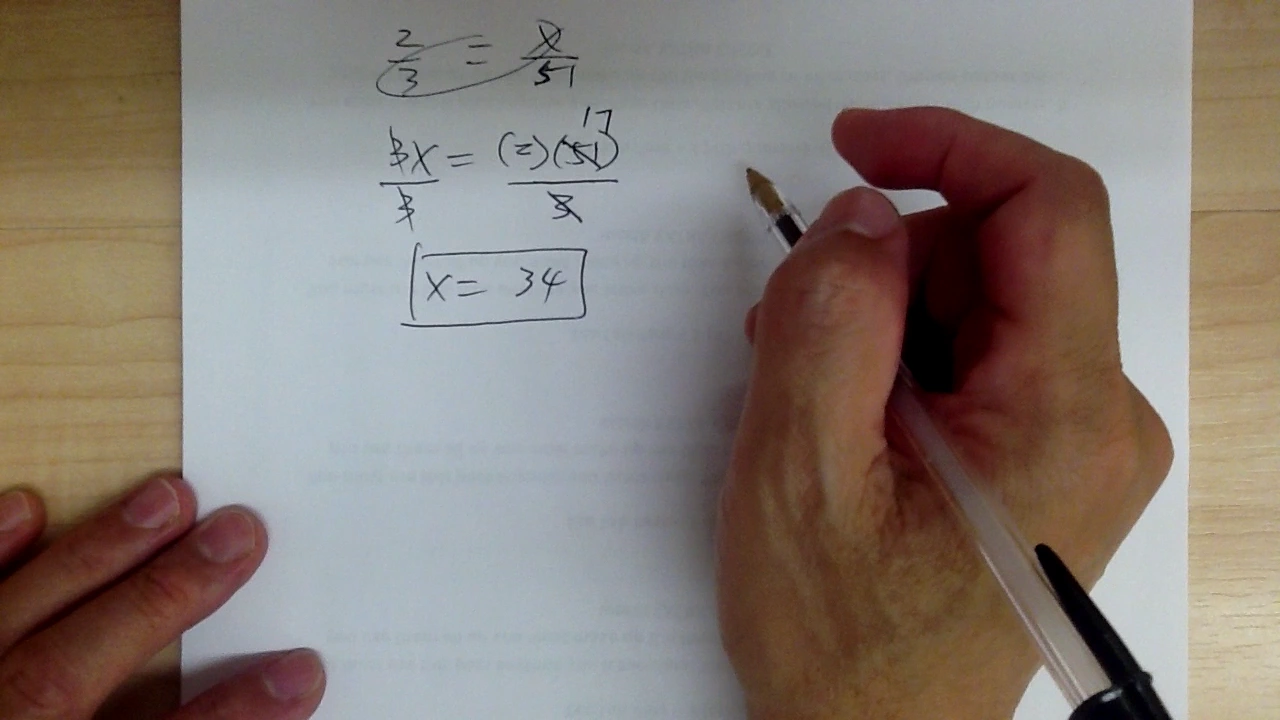 2/3 = x/51
3x/3 = (2)(51)/3 17
x = 34